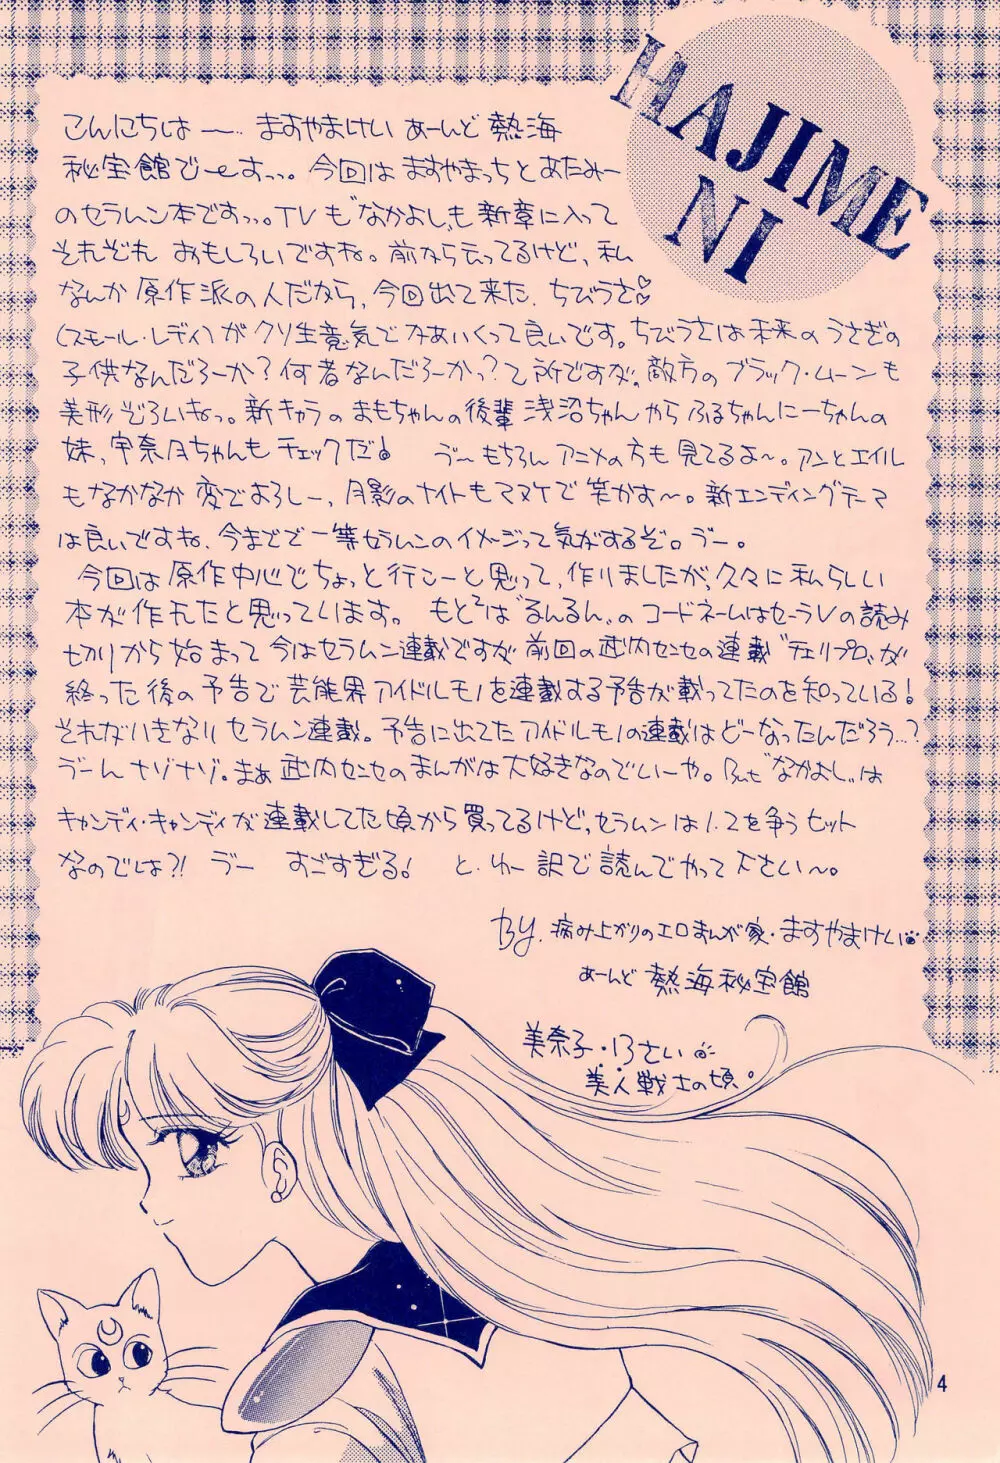 HAJIME
NI
こんにちは〜… ますやまけい あーんど 熱海
秘宝館でーすっっ。今回は ますやまっち と あたみー
のセラムン本ですっっ。TVも"なかよし"も 新章に入って
それぞれ おもしろいですね。前から云ってるけど、私
なんか 原作派の人だから、今回出て来た ちびうさ♡
(スモール・レディ)が クソ生意気で かあいくって良いです。ちびうさは 未来の うさぎの
子供なんだろーか？何者なんだろーかっ？て所ですが。敵方の ブラック・ムーンも
美形ぞろいねっ。新キャラの まもちゃんの後輩 浅沼ちゃん やら ふるちゃんにーちゃんの
妹、宇奈月ちゃんも チェックだ！ ゔー もちろん アニメの方も 見てるよ〜。アンとエイル
もなかなか 変でよろしー、月影のナイトもマヌケで 笑かす〜。新エンディングテーマ
は良いですね、今までで 一等セラムンのイメージって気がするぞ。ゔー。
今回は 原作中心でちょっと行こーと思って、作りましたが、久々に 私らしい
本が作れたと思っています。 もともとは"るんるん"の コードネームはセーラVの読み
切りから始まって 今はセラムン連載ですが 前回の 武内センセの連載"チェリプロ"が
終った後の 予告で 芸能界アイドルモノを連載する予告が載ってたのを知っている！
それがいきなり セラムン連載。予告に出てた アイドルモノの連載は どーなったんだろう…？
ゔーん ナゾナゾ。まぁ 武内センセのまんがは大好きなのでいーや。But"なかよし"は
キャンディ・キャンディが 連載してた頃から買ってるけど、セラムンは 1.2を争う ヒット
なのでは?! ゔー すごすぎる！ と.ゆー 訳で 読んでやって下さい〜。
By. 病み上がりのエロまんが家・ますやまけい
あーんど 熱海秘宝館
美奈子・13さい
美人戦士の頃。
4